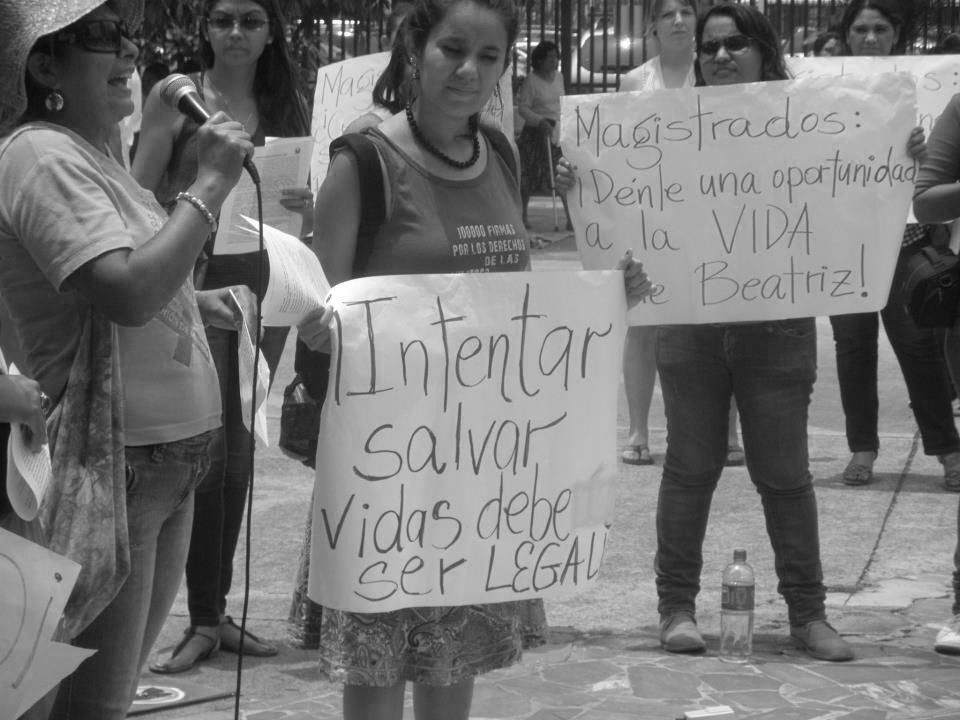 ¡Intentar
salvar
vidas debe
ser LEGAL!
Magistrados:
¡Dénle una oportunidad
a la VIDA
Beatriz!
100000 FIRMAS
POR LOS DERECHOS
DE LAS